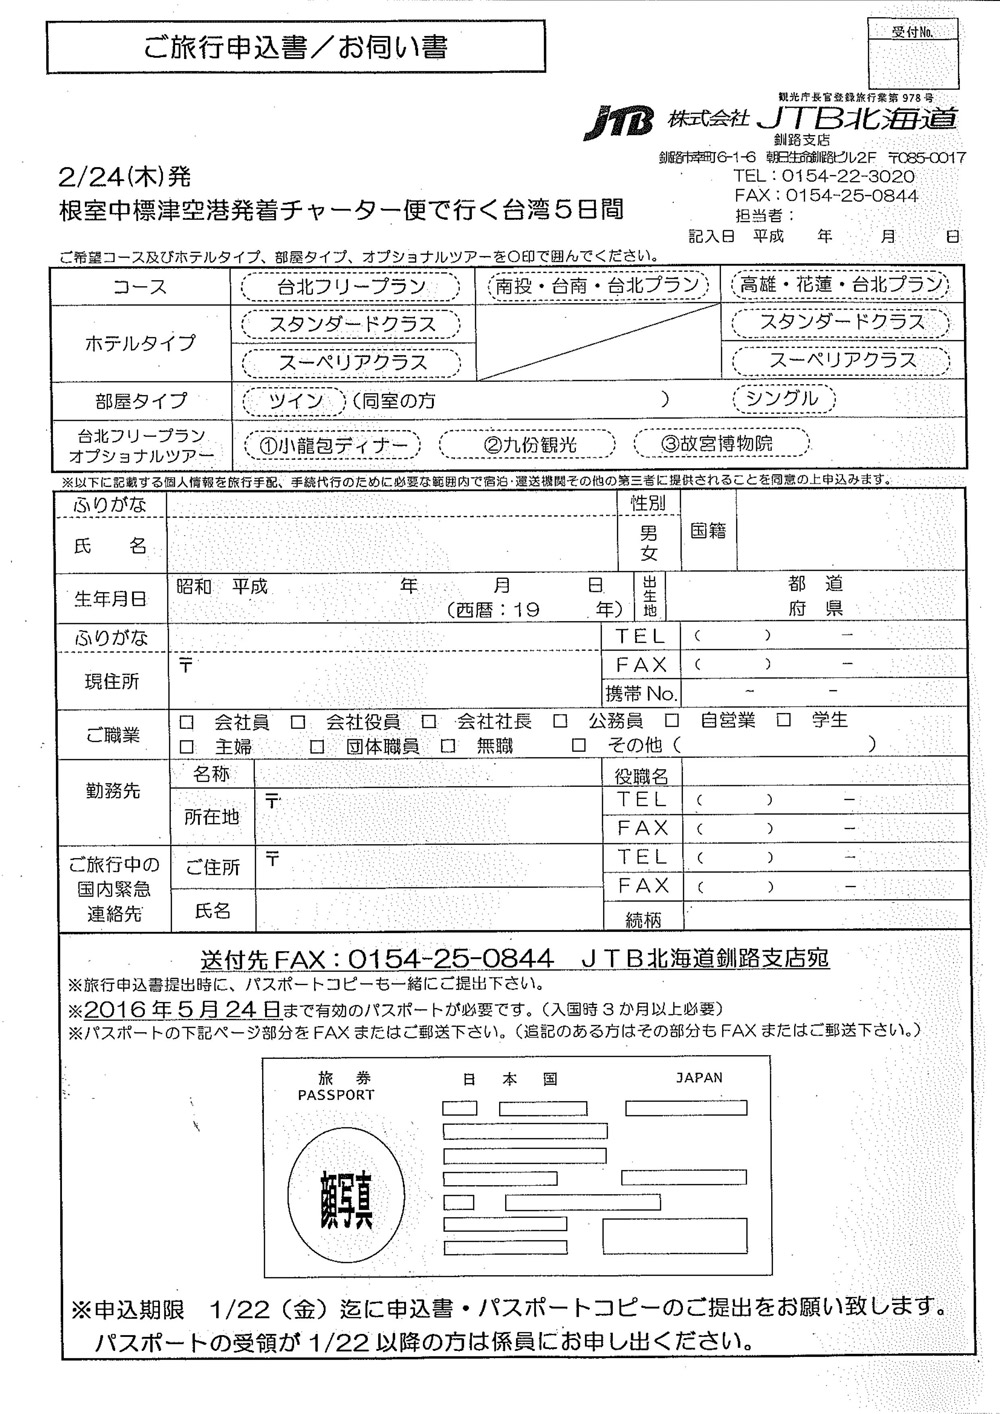 ご旅行申込書／お伺い書
受付No.
観光庁長官登録旅行業第978号
JTB 株式会社 JTB北海道
釧路支店
釧路市幸町6-1-6 朝日生命釧路ビル2F 〒085-0017
TEL：0154-22-3020
FAX：0154-25-0844
担当者：
記入日 平成 年 月 日
2/24(木)発
根室中標津空港発着チャーター便で行く台湾5日間
ご希望コース及びホテルタイプ、部屋タイプ、オプショナルツアーを〇印で囲んでください。
コース 台北フリープラン 南投・台南・台北プラン 高雄・花蓮・台北プラン
ホテルタイプ スタンダードクラス スタンダードクラス
スーペリアクラス スーペリアクラス
部屋タイプ ツイン （同室の方 ） シングル
台北フリープラン
オプショナルツアー ①小龍包ディナー ②九份観光 ③故宮博物院
※以下に記載する個人情報を旅行手配、手続代行のために必要な範囲内で宿泊・運送機関その他の第三者に提供されることを同意の上申込みます。
ふりがな 性別
氏 名 男 女 国籍
生年月日 昭和 平成 年 月 日 出生地 都 道
（西暦：19 年） 府 県
ふりがな TEL （ ） －
現住所 〒 FAX （ ） －
携帯No. － －
ご職業 □ 会社員 □ 会社役員 □ 会社社長 □ 公務員 □ 自営業 □ 学生
□ 主婦 □ 団体職員 □ 無職 □ その他（ ）
勤務先 名称 役職名
所在地 〒 TEL （ ） －
FAX （ ） －
ご旅行中の
国内緊急
連絡先 ご住所 〒 TEL （ ） －
FAX （ ） －
氏名 続柄
送付先FAX：0154-25-0844 JTB北海道釧路支店宛
※旅行申込書提出時に、パスポートコピーも一緒にご提出下さい。
※2016年5月24日まで有効のパスポートが必要です。（入国時3か月以上必要）
※パスポートの下記ページ部分をFAXまたはご郵送下さい。（追記のある方はその部分もFAXまたはご郵送下さい。）
旅 券 日 本 国 JAPAN
PASSPORT
顔写真
※申込期限 1/22（金）迄に申込書・パスポートコピーのご提出をお願い致します。
パスポートの受領が1/22以降の方は係員にお申し出ください。